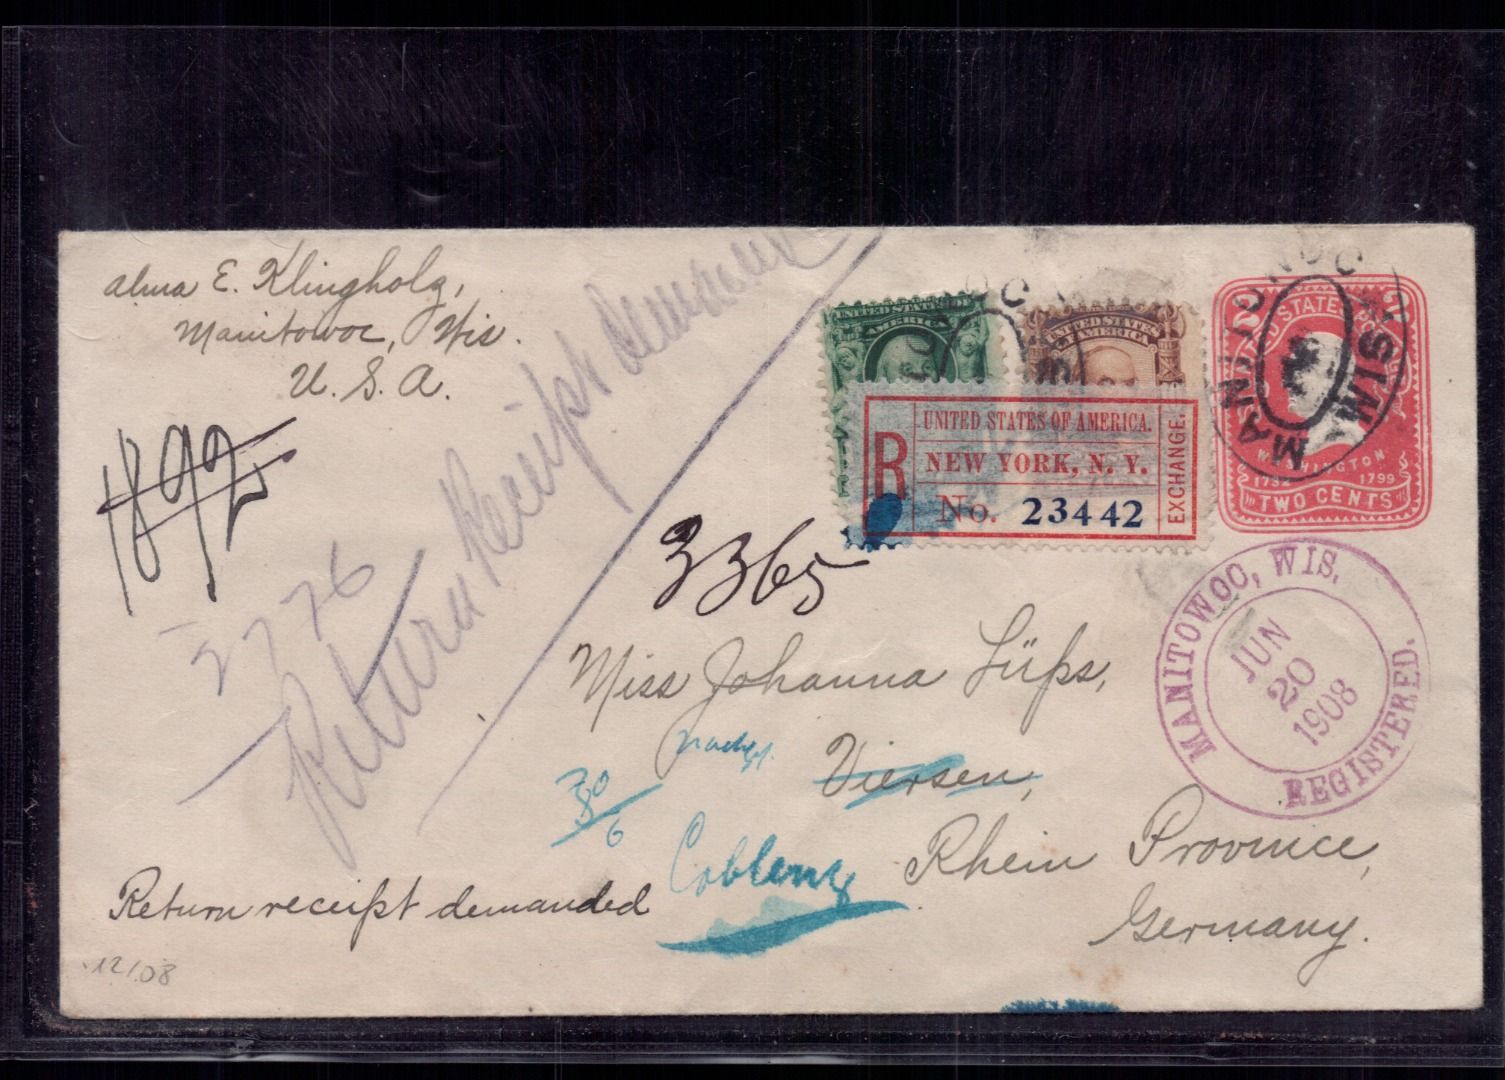 Alma E. Klingholz,
Manitowoc, Wis.
U. S. A.
1892
2776
Return Receipt demanded
UNITED STATES OF
AMERICA
UNITED STATES
OF AMERICA
R
UNITED STATES OF AMERICA.
NEW YORK, N. Y.
No. 23442
EXCHANGE.
UNITED STATES
WASHINGTON
1732 1799
TWO CENTS
WIS.
3365
MANITOWOC, WIS.
JUN
20
1908
REGISTERED.
Miss Johanna Lüps,
Viersen,
30/6
Coblenz
Rhein Province,
Germany.
Return receipt demanded
12/08